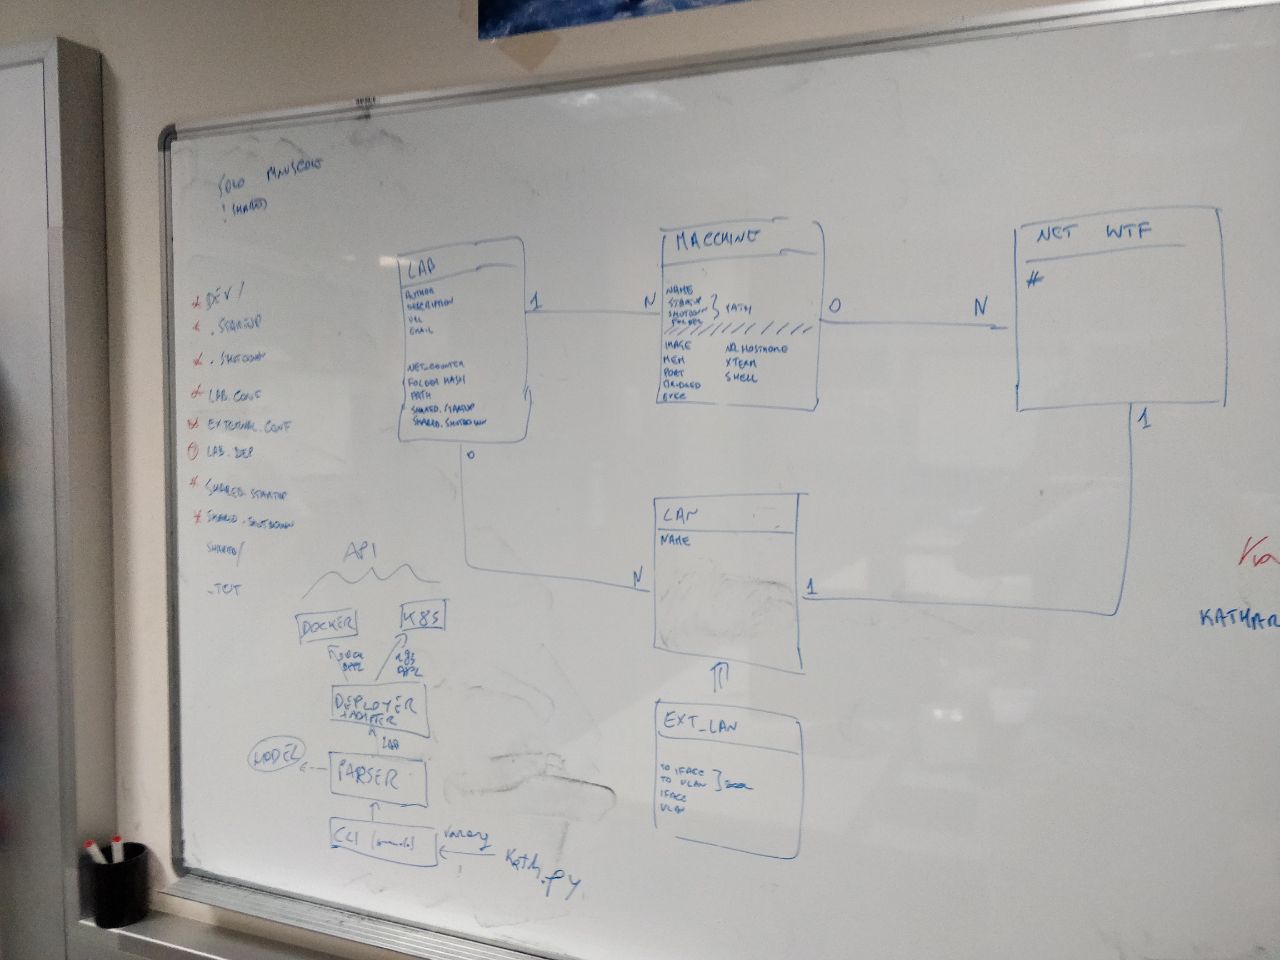 SOLO MINUSCOLE
! SHARED
DEV/
.STARTUP
.SHUTDOWN
LAB.CONF
EXTERNAL.CONF
LAB.DEP
SHARED.STARTUP
SHARED.SHUTDOWN
SHARED/
_TEST
LAB
AUTHOR
DESCRIPTION
URL
EMAIL
NET_COUNTER
FOLDER HASH
PATH
SHARED.STARTUP
SHARED.SHUTDOWN
1
N
0
N
MACCHINE
NAME
STARTUP
SHUTDOWN
FOLDER
PATH
IMAGE
MEM
PORT
BRIDGED
EXEC
NO_HOSTHOME
XTERM
SHELL
0
N
NET WTF
#
1
1
LAN
NAME
EXT_LAN
TO IFACE
TO VLAN
IFACE
VLAN
API
DOCKER
K8S
K8S
DEPLOYER
+ ADAPTER
LAB
MODEL
PARSER
CLI
Kath.py
KATHAR